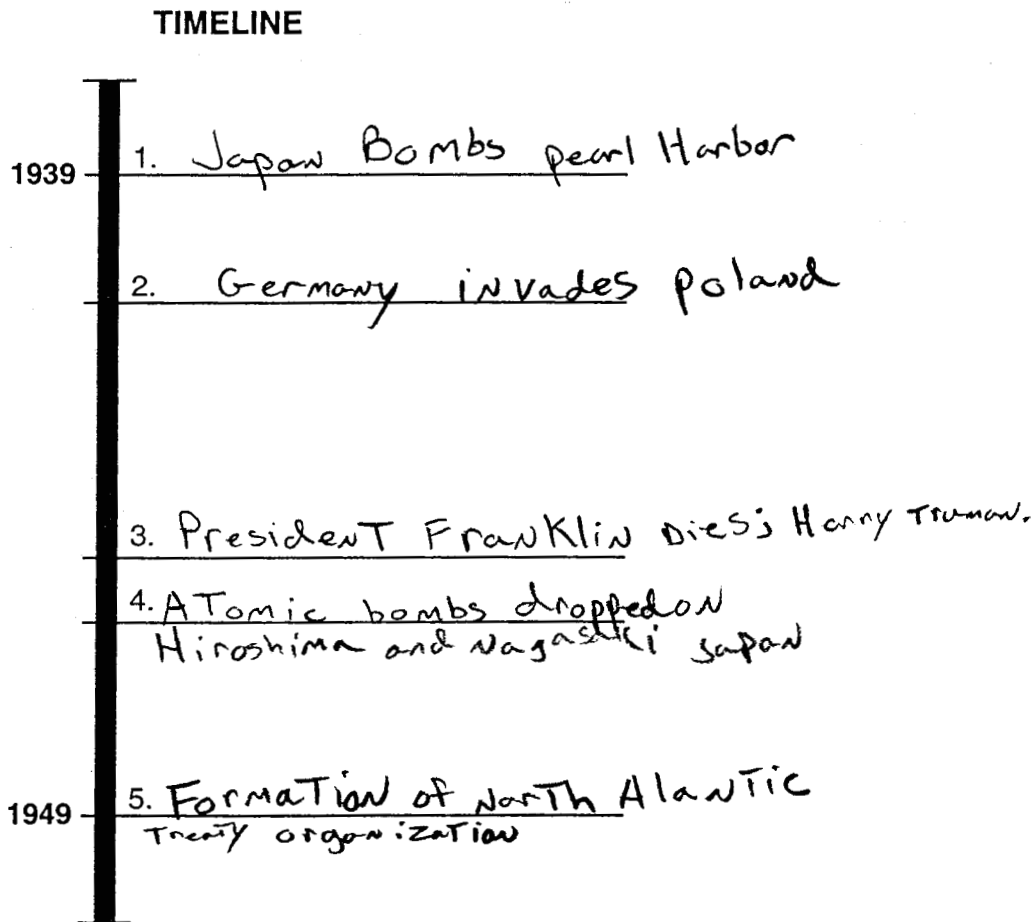 TIMELINE
1. Japan Bombs pearl Harbor
1939
2. Germany invades poland
3. President Franklin Dies; Harry Truman.
4. Atomic bombs dropped on
Hiroshima and Nagasaki Japan
5. Formation of North Alantic
1949
Treaty organization